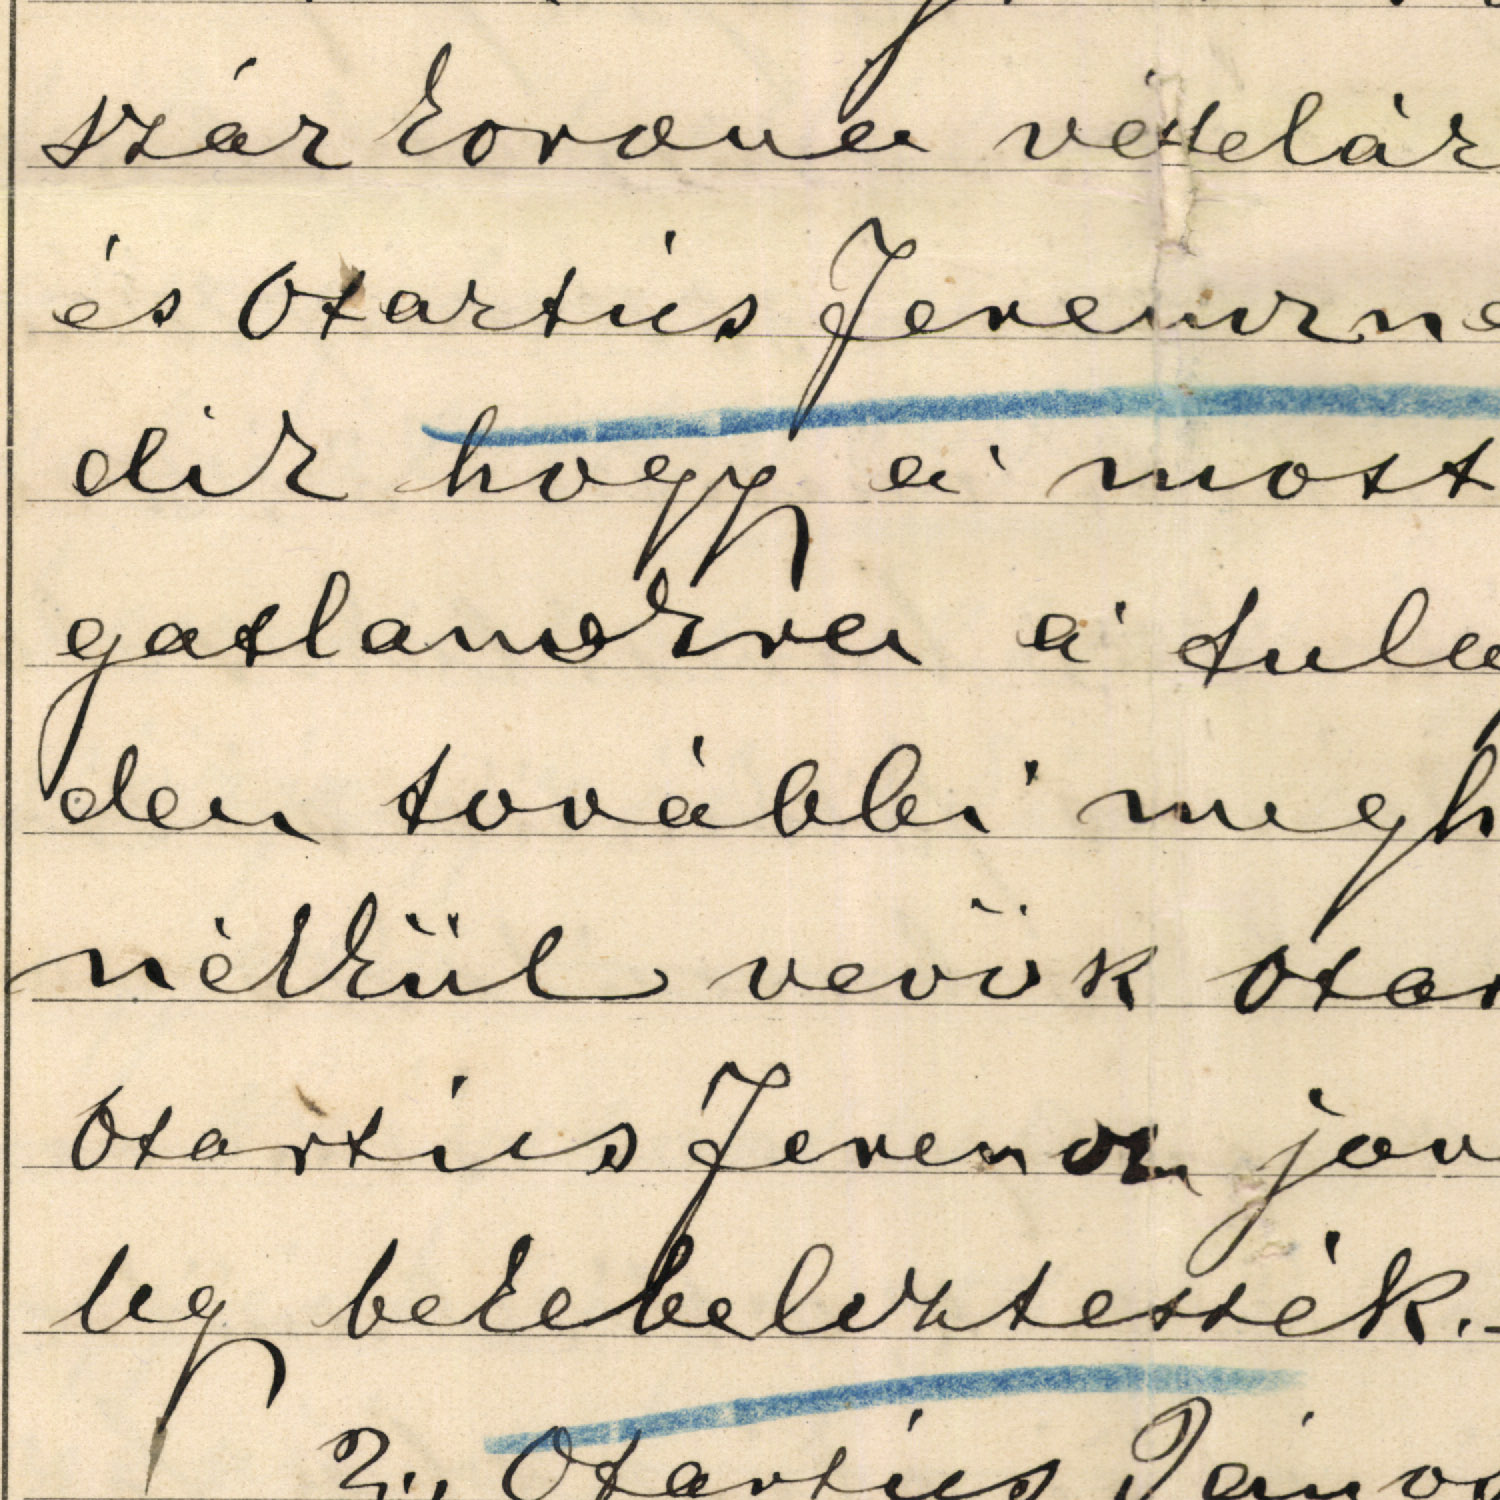 száz korona vételár
és Otartics Jeremizne
diz hogy a' most
gatlanokra a' tula
den további megh
nélkül vevök Otar
Otartics Jeremi jav
leg bekebeleztessék.-
2., Otartics János